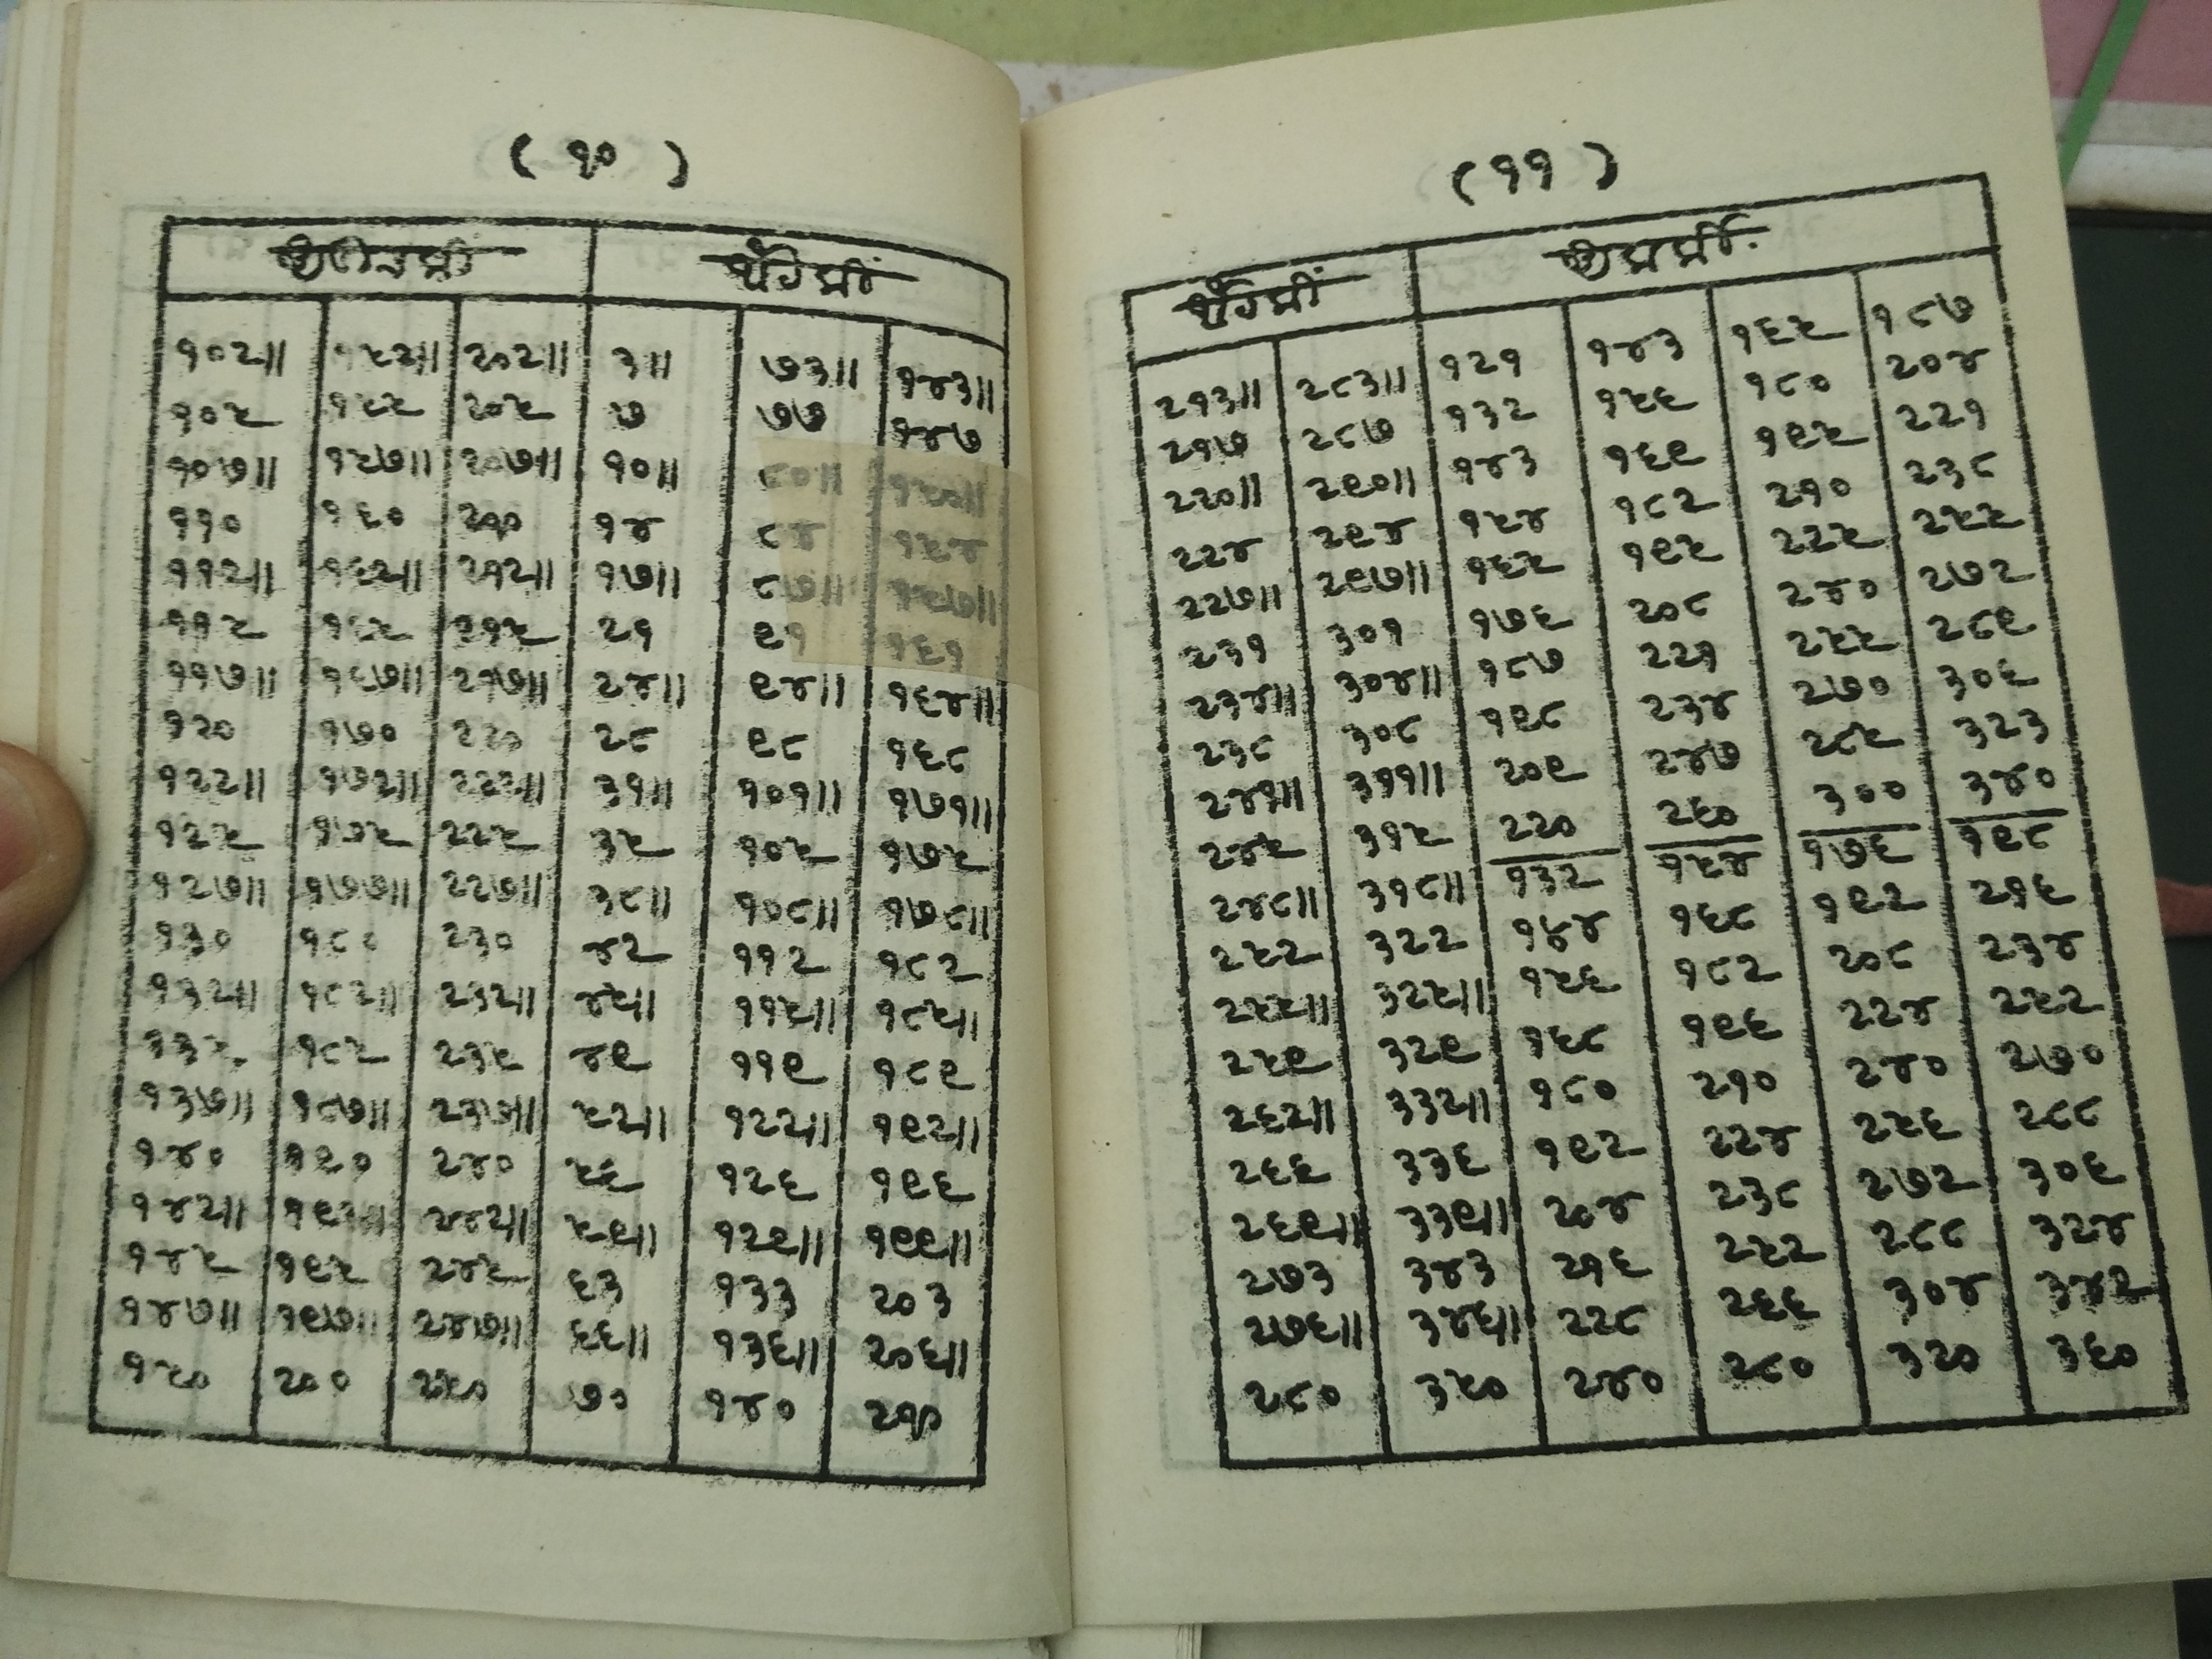 ( १० )
१०२॥ १५२॥ २०२॥ ३॥ ७३॥ १४३॥
१०५ १५५ २०५ ७ ७७ १४७
१०७॥ १५७॥ २०७॥ १०॥ ८०॥ १५०॥
११० १६० २१० १४ ८४ १५४
११२॥ १६२॥ २१२॥ १७॥ ८७॥ १५७॥
११५ १६५ २१५ २१ ९१ १६१
११७॥ १६७॥ २१७॥ २४॥ ९४॥ १६४॥
१२० १७० २२० २८ ९८ १६८
१२२॥ १७२॥ २२२॥ ३१॥ १०१॥ १७१॥
१२५ १७५ २२५ ३५ १०५ १७५
१२७॥ १७७॥ २२७॥ ३८॥ १०८॥ १७८॥
१३० १८० २३० ४२ ११२ १८२
१३२॥ १८२॥ २३२॥ ४५॥ ११५॥ १८५॥
१३५ १८५ २३५ ४९ ११९ १८९
१३७॥ १८७॥ २३७॥ ५२॥ १२२॥ १९२॥
१४० १९० २४० ५६ १२६ १९६
१४२॥ १९२॥ २४२॥ ५९॥ १२९॥ १९९॥
१४५ १९५ २४५ ६३ १३३ २०३
१४७॥ १९७॥ २४७॥ ६६॥ १३६॥ २०६॥
१५० २०० २५० ७० १४० २१०
( ११ )
२१३॥ २८३॥ १२१ १४३ १६५ १८७
२१७ २८७ १३२ १५६ १८० २०४
२२०॥ २९०॥ १४३ १६९ १९५ २२१
२२४ २९४ १५४ १८२ २१० २३८
२२७॥ २९७॥ १६५ १९५ २२५ २५५
२३१ ३०१ १७६ २०८ २४० २७२
२३४॥ ३०४॥ १८७ २२१ २५५ २८९
२३८ ३०८ १९८ २३४ २७० ३०६
२४१॥ ३११॥ २०९ २४७ २८५ ३२३
२४५ ३१५ २२० २६० ३०० ३४०
२४८॥ ३१८॥ १३२ १५४ १७६ १९८
२५२ ३२२ १४४ १६८ १९२ २१६
२५५॥ ३२५॥ १५६ १८२ २०८ २३४
२५९ ३२९ १६८ १९६ २२४ २५२
२६२॥ ३३२॥ १८० २१० २४० २७०
२६६ ३३६ १९२ २२४ २५६ २८८
२६९॥ ३३९॥ २०४ २३८ २७२ ३०६
२७३ ३४३ २१६ २५२ २८८ ३२४
२७६॥ ३४६॥ २२८ २६६ ३०४ ३४२
२८० ३५० २४० २८० ३२० ३६०